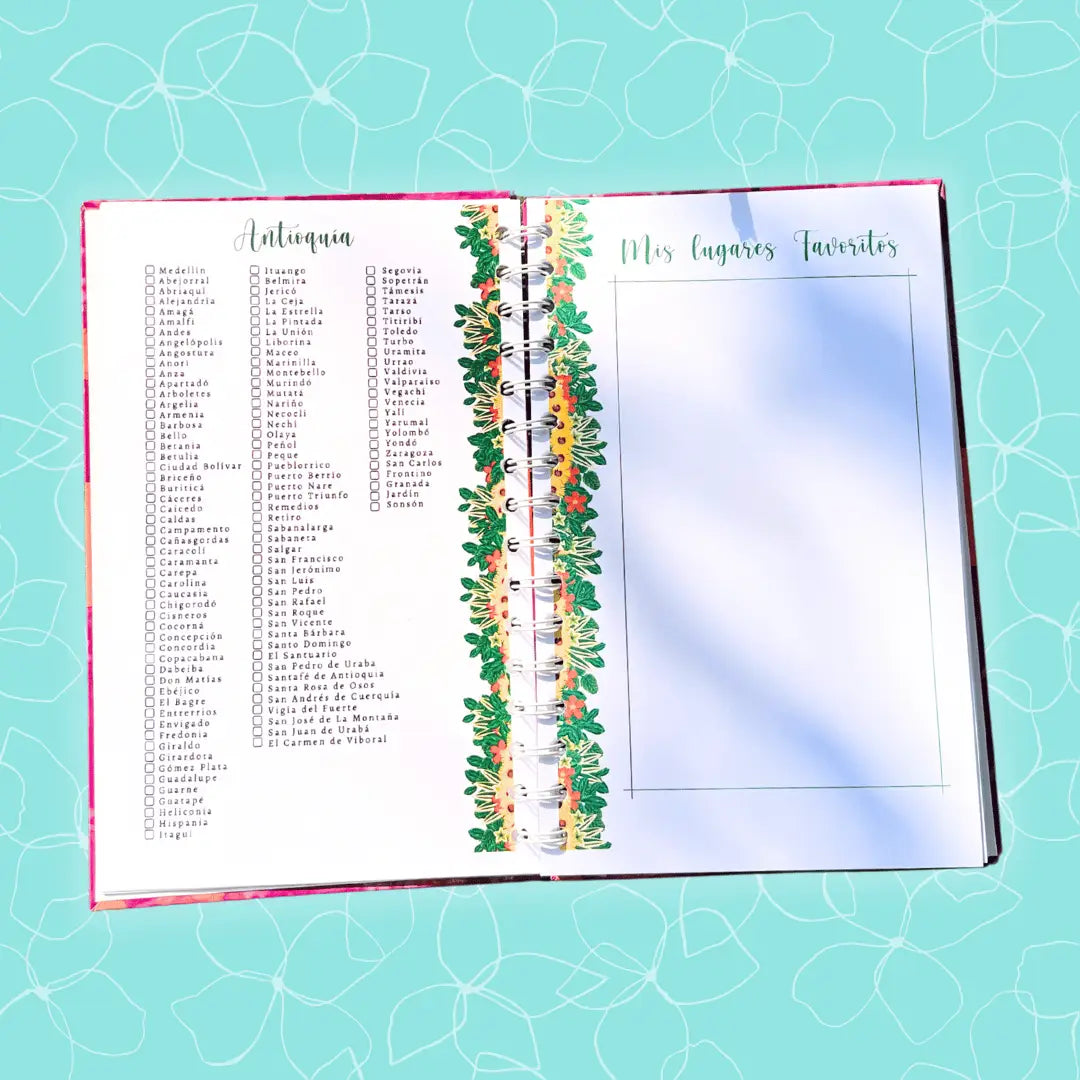 Antioquia
Medellín
Abejorral
Abriaquí
Alejandría
Amagá
Amalfi
Andes
Angelópolis
Angostura
Anorí
Anza
Apartadó
Arboletes
Argelia
Armenia
Barbosa
Bello
Betania
Betulia
Ciudad Bolívar
Briceño
Buriticá
Cáceres
Caicedo
Caldas
Campamento
Cañasgordas
Caracolí
Caramanta
Carepa
Carolina
Caucasia
Chigorodó
Cisneros
Cocorná
Concepción
Concordia
Copacabana
Dabeiba
Don Matías
Ebéjico
El Bagre
Entrerrios
Envigado
Fredonia
Giraldo
Girardota
Gómez Plata
Guadalupe
Guarne
Guatapé
Heliconia
Hispania
Itagui
Ituango
Belmira
Jericó
La Ceja
La Estrella
La Pintada
La Unión
Liborina
Maceo
Marinilla
Montebello
Murindó
Mutatá
Nariño
Necoclí
Nechí
Olaya
Peñol
Peque
Pueblorrico
Puerto Berrío
Puerto Nare
Puerto Triunfo
Remedios
Retiro
Sabanalarga
Sabaneta
Salgar
San Francisco
San Jerónimo
San Luis
San Pedro
San Rafael
San Roque
San Vicente
Santa Bárbara
Santo Domingo
El Santuario
San Pedro de Uraba
Santafé de Antioquia
Santa Rosa de Osos
San Andrés de Cuerquía
Vigía del Fuerte
San José de La Montaña
San Juan de Urabá
El Carmen de Viboral
Segovia
Sopetrán
Támesis
Tarazá
Tarso
Titiribí
Toledo
Turbo
Uramita
Urrao
Valdivia
Valparaíso
Vegachí
Venecia
Yalí
Yarumal
Yolombó
Yondó
Zaragoza
San Carlos
Frontino
Granada
Jardín
Sonsón
Mis lugares Favoritos